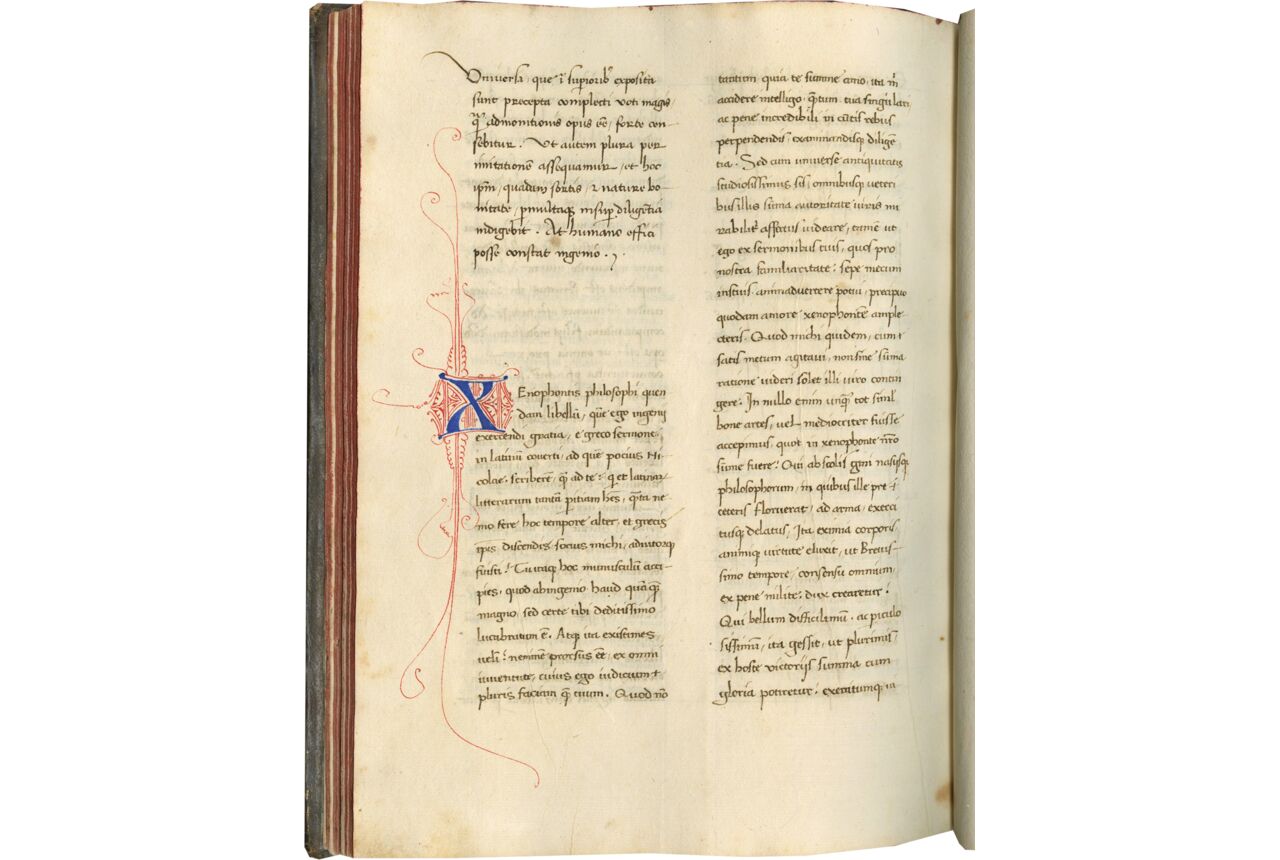 Vniversa que ī superiorib' exposita
sunt precepta complecti voti magis
q̄ admonitionis opus ēē, forte cen
sebitur. Vt autem plura per
imitationē assequamur, et hoc
ipm, quadam sortis, & nature bo
nitate, pmultaq insup diligētia
indigebit. At humano effici
posse constat ingenio.
XEnophontis philosophi quen
dam libellū, quē ego ingenij
exercendi gratia, e greco sermone,
in latinū coverti, ad quē pocius Ni
colae scriberem, q̄ ad te? q et latinar
litterarum tantā pitiam hēs, quāta ne
mo fere hoc tempore alter, et grecis
ipis discendis socius michi, adiutorq
fuisti? Tu itaq hoc munusculū acci
pies, quod ab ingenio haud quāq
magno, sed certe tibi deditissimo
lucubratum ē. Atq ita existimes
velī: neminē prorsus ēē, ex omni
iuventute, cuius ego iudicium
pluris faciam q̄ tuum. Quod nō
tantum, quia te summe amo, ita m
accidere intelligo, q̄tum tua singulari
ac pene incredibili in cūtis rebus
perpendendis, examinandisq diligē
tia. Sed cum universe antiquitatis
studiosissimus sis, omnibusq veteri
bus illis sūma autoritate viris mi
rabilit affectus videare, tamē ut
ego ex sermonibus tuis, quos pro
nostra familiaritate, sepe mecum
instituis, animadvertere potui, precipuo
quodam amore xenophontē ample
cteris. Quod michi quidem, cum
satis mecum agitavi, non sine sūma
ratione videri solet illi viro contin
gere. In nullo enim unq tot siml
bone artes, vel mediocriter fuisse
accepimus, quot in xenophonte nro
sūme fuere? Qui ab scolis, gīnnasijsq
philosophorum, in quibus ille pre
ceteris floruerat, ad arma, exerci
tusq delatus, Ita eximia corporis
animiq virtute eluxit, ut Brevis
simo tempore, consensu omnium,
ex pene milite, dux crearetur?
Qui bellum difficilimū, ac piculo
sissimū, ita gessit, ut plurimis
ex hoste victorijs summa cum
gloria potiretur, exercitumq